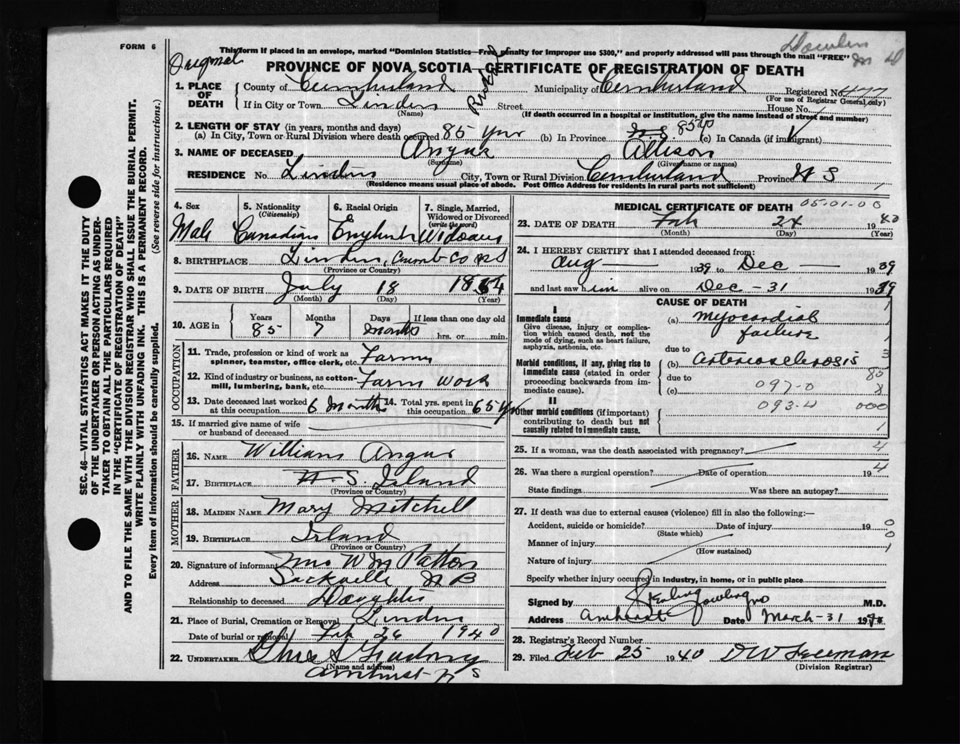 FORM 6
Original
This form if placed in an envelope, marked "Dominion Statistics—Free, penalty for improper use $300," and properly addressed will pass through the mail "FREE"
PROVINCE OF NOVA SCOTIA—CERTIFICATE OF REGISTRATION OF DEATH
1. PLACE OF DEATH
County of Cumberland Municipality of Cumberland Registered No. 477
(For use of Registrar General only)
If in City or Town Linden Street House No.
(Name) (If death occurred in a hospital or institution, give the name instead of street and number)
2. LENGTH OF STAY (in years, months and days)
(a) In City, Town or Rural Division where death occurred 85 yrs (b) In Province N.S. 85 yr (c) In Canada (if immigrant)
3. NAME OF DECEASED Angus Allison
(Surname) (Given name or names)
RESIDENCE No. Linden City, Town or Rural Division Cumberland Province N S
(Residence means usual place of abode. Post Office Address for residents in rural parts not sufficient)
4. Sex 5. Nationality (Citizenship) 6. Racial Origin 7. Single, Married, Widowed or Divorced (write the word)
Male Canadian English Widower
8. BIRTHPLACE Linden, Cumb Co NS
(Province or Country)
9. DATE OF BIRTH July 18 1854
(Month) (Day) (Year)
10. AGE in Years Months Days If less than one day old
85 7 months hrs. or min.
OCCUPATION
11. Trade, profession or kind of work as spinner, teamster, office clerk, etc. Farmer
12. Kind of industry or business, as cotton-mill, lumbering, bank, etc. Farm Work
13. Date deceased last worked at this occupation 6 Months 14. Total yrs. spent in this occupation 65 yr
15. If married give name of wife or husband of deceased
FATHER
16. NAME William Angus
17. BIRTHPLACE N.S. Island
(Province or Country)
MOTHER
18. MAIDEN NAME Mary Mitchell
19. BIRTHPLACE Irland
(Province or Country)
20. Signature of informant Mrs W M Patton
Address Sackville N B
Relationship to deceased Daughter
21. Place of Burial, Cremation or Removal Linden
Date of burial or removal Feb 26 1940
22. UNDERTAKER
(Name and address)
Amherst N S
MEDICAL CERTIFICATE OF DEATH 05-01-00
23. DATE OF DEATH Feb 24 1940
(Month) (Day) (Year)
24. I HEREBY CERTIFY that I attended deceased from:
Aug 1939 to Dec 1939
and last saw him alive on Dec - 31 1939
CAUSE OF DEATH
I
Immediate cause
Give disease, injury or complication which caused death, not the mode of dying, such as heart failure, asphyxia, asthenia, etc.
(a) Myocardial failure
due to
Morbid conditions, if any, giving rise to immediate cause (stated in order proceeding backwards from immediate cause).
(b) Arteriosclerosis
due to
(c) 097-0
093-4
II
Other morbid conditions (if important) contributing to death but not causally related to immediate cause.
25. If a woman, was the death associated with pregnancy?
26. Was there a surgical operation? Date of operation 19
State findings Was there an autopsy?
27. If death was due to external causes (violence) fill in also the following:—
Accident, suicide or homicide? Date of injury 19
(State which)
Manner of injury
(How sustained)
Nature of injury
Specify whether injury occurred in industry, in home, or in public place
Signed by M.D.
Address Amherst Date March-31 19
28. Registrar's Record Number
29. Filed Feb 25 1940 D W Freeman
(Division Registrar)
SEC. 46—VITAL STATISTICS ACT MAKES IT THE DUTY OF THE UNDERTAKER OR PERSON ACTING AS UNDERTAKER TO OBTAIN ALL THE PARTICULARS REQUIRED IN THE "CERTIFICATE OF REGISTRATION OF DEATH" AND TO FILE THE SAME WITH THE DIVISION REGISTRAR WHO SHALL ISSUE THE BURIAL PERMIT.
WRITE PLAINLY WITH UNFADING INK. THIS IS A PERMANENT RECORD.
Every item of information should be carefully supplied. (See reverse side for instructions.)